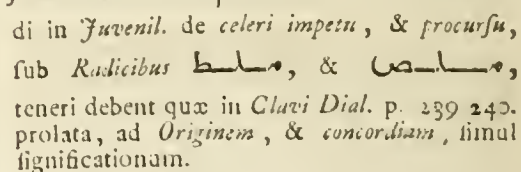 di in Juvenil. de celeri impetu, & procurſu,
ſub Radicibus ملط, & ملص,
teneri debent quæ in Clavi Dial. p. 239 240.
prolata, ad Originem, & concordiam, ſimul
ſignificationum.